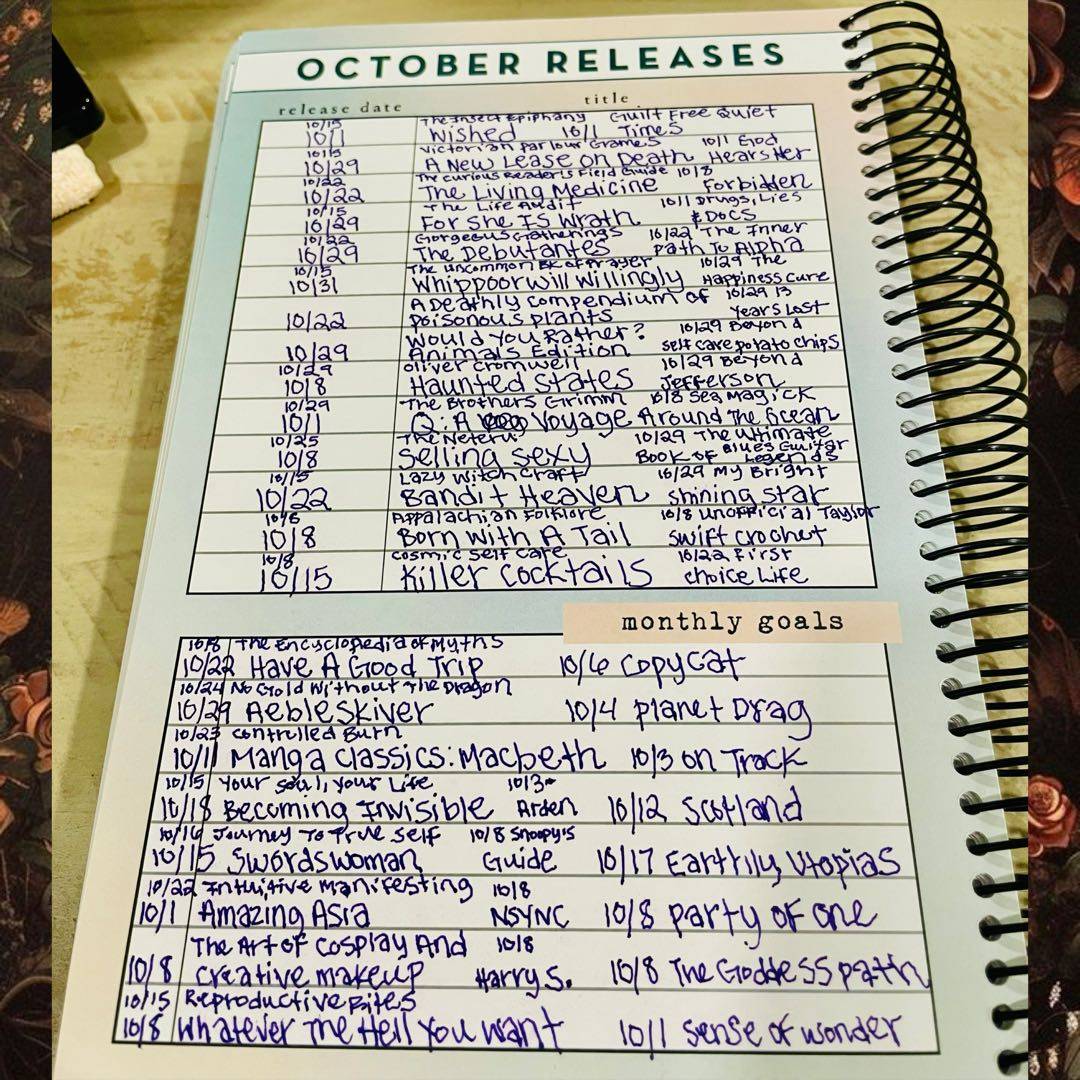 OCTOBER RELEASES
release date title
10/15 The Insect Epiphany Guilt Free Quiet
10/1 Wished 10/1 Times
10/15 Victorian Parlour Games 10/1 God
10/29 A New Lease on Death Hears Her
10/22 The Curious Reader's Field Guide 10/8
10/22 The Living Medicine Forbidden
10/15 The Life Audit 10/1 Drugs, Lies
10/29 For She Is Wrath & DOCS
10/22 Gorgeous Gatherings 10/22 The Inner
10/29 The Debutantes Path To Alpha
10/15 The Uncommon BK of Prayer 10/29 The
10/31 Whippoorwill Willingly Happiness Cure
A Deathly Compendium of 10/29 13
10/22 Poisonous Plants Years Lost
Would You Rather? 10/29 Beyond
10/29 Animals Edition Self Care Potato Chips
10/29 Oliver Cromwell 10/29 Beyond
10/8 Haunted States Jefferson
10/29 The Brothers Grimm 10/8 Sea Magick
10/1 Q: A Voyage Around The Ocean
10/25 The Neteru 10/29 The Ultimate
10/8 Selling Sexy Book of Blues Guitar Legends
10/15 Lazy Witch Craft 10/29 My Bright
10/22 Bandit Heaven Shining Star
10/8 Appalachian Folklore 10/8 Unofficial Taylor
10/8 Born With A Tail Swift Crochet
10/8 Cosmic Self Care 10/22 First
10/15 Killer Cocktails Choice Life
monthly goals
10/8 The Encyclopedia of Myths
10/22 Have A Good Trip 10/6 Copycat
10/24 No Gold Without The Dragon
10/29 Aebleskiver 10/4 Planet Drag
10/23 Controlled Burn
10/11 Manga Classics: Macbeth 10/3 On Track
10/15 Your Soul, Your Life 10/3
10/18 Becoming Invisible Arden 10/12 Scotland
10/16 Journey To True Self 10/8 Snoopy's
10/15 Swordswoman Guide 10/17 Earthly Utopias
10/22 Intuitive Manifesting 10/8
10/1 Amazing Asia NSYNC 10/8 Party of One
The Art of Cosplay And 10/8
10/8 Creative Makeup Harry S. 10/8 The Goddess Path
10/15 Reproductive Bites
10/8 Whatever The Hell You Want 10/1 Sense of Wonder